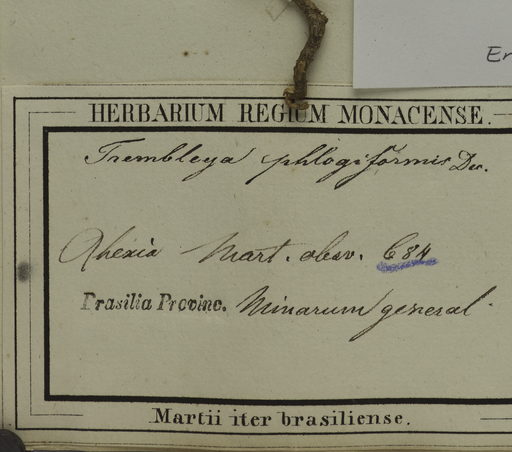 Er
HERBARIUM REGIUM MONACENSE.
Trembleya phlogiformis Dec.
Rhexia Mart. obsv. 684
Brasilia Provinc. Minarum general.
Martii iter brasiliense.